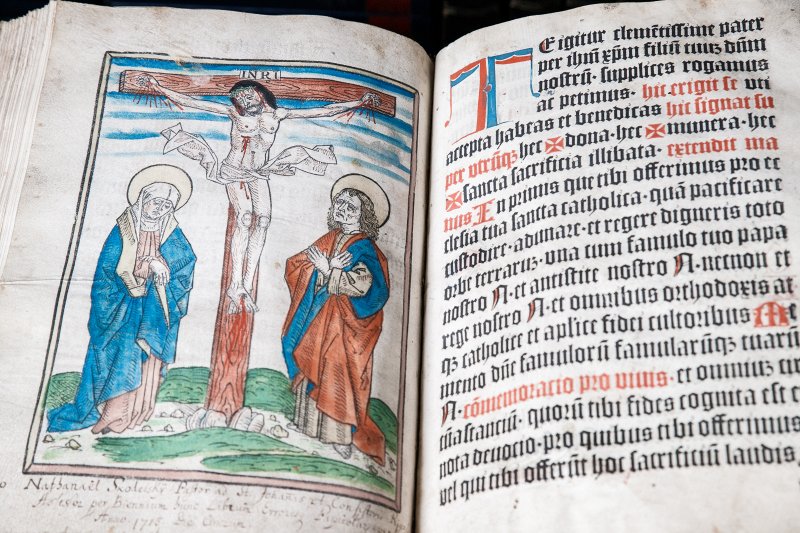 INRI
Nathanaël
per Biennium hunc Librum
Anno 1715
Te igitur clemētissime pater
per ihm̄ xp̄m filiū tuuz dn̄m
nostrū· supplices rogamus
ac petimus· hic erigit se vti
accepta habeas et benedicas hic signat su
per vtrūqz hec ✠ dona· hec ✠ munera· hec
✠ sancta sacrificia illibata· extendit ma
nus In primis que tibi offerimus pro ec
clesia tua sancta catholica· quā pacificare
custodire· adunare· et regere digneris toto
orbe terraruz· vna cum famulo tuo papa
nostro N· et antistite nostro N· necnon et
rege nostro N· et omnibus orthodoxis at
qz catholice et aplice fidei cultoribus Me
mento dn̄e famulorū famularūqz tuarū
N· cōmemoracio pro viuis· et omniuz cir
cūstanciū· quorū tibi fides cognita est et
nota deuocio· pro quibus tibi offerimus
vel qui tibi offerūt hoc sacrificiū laudis·